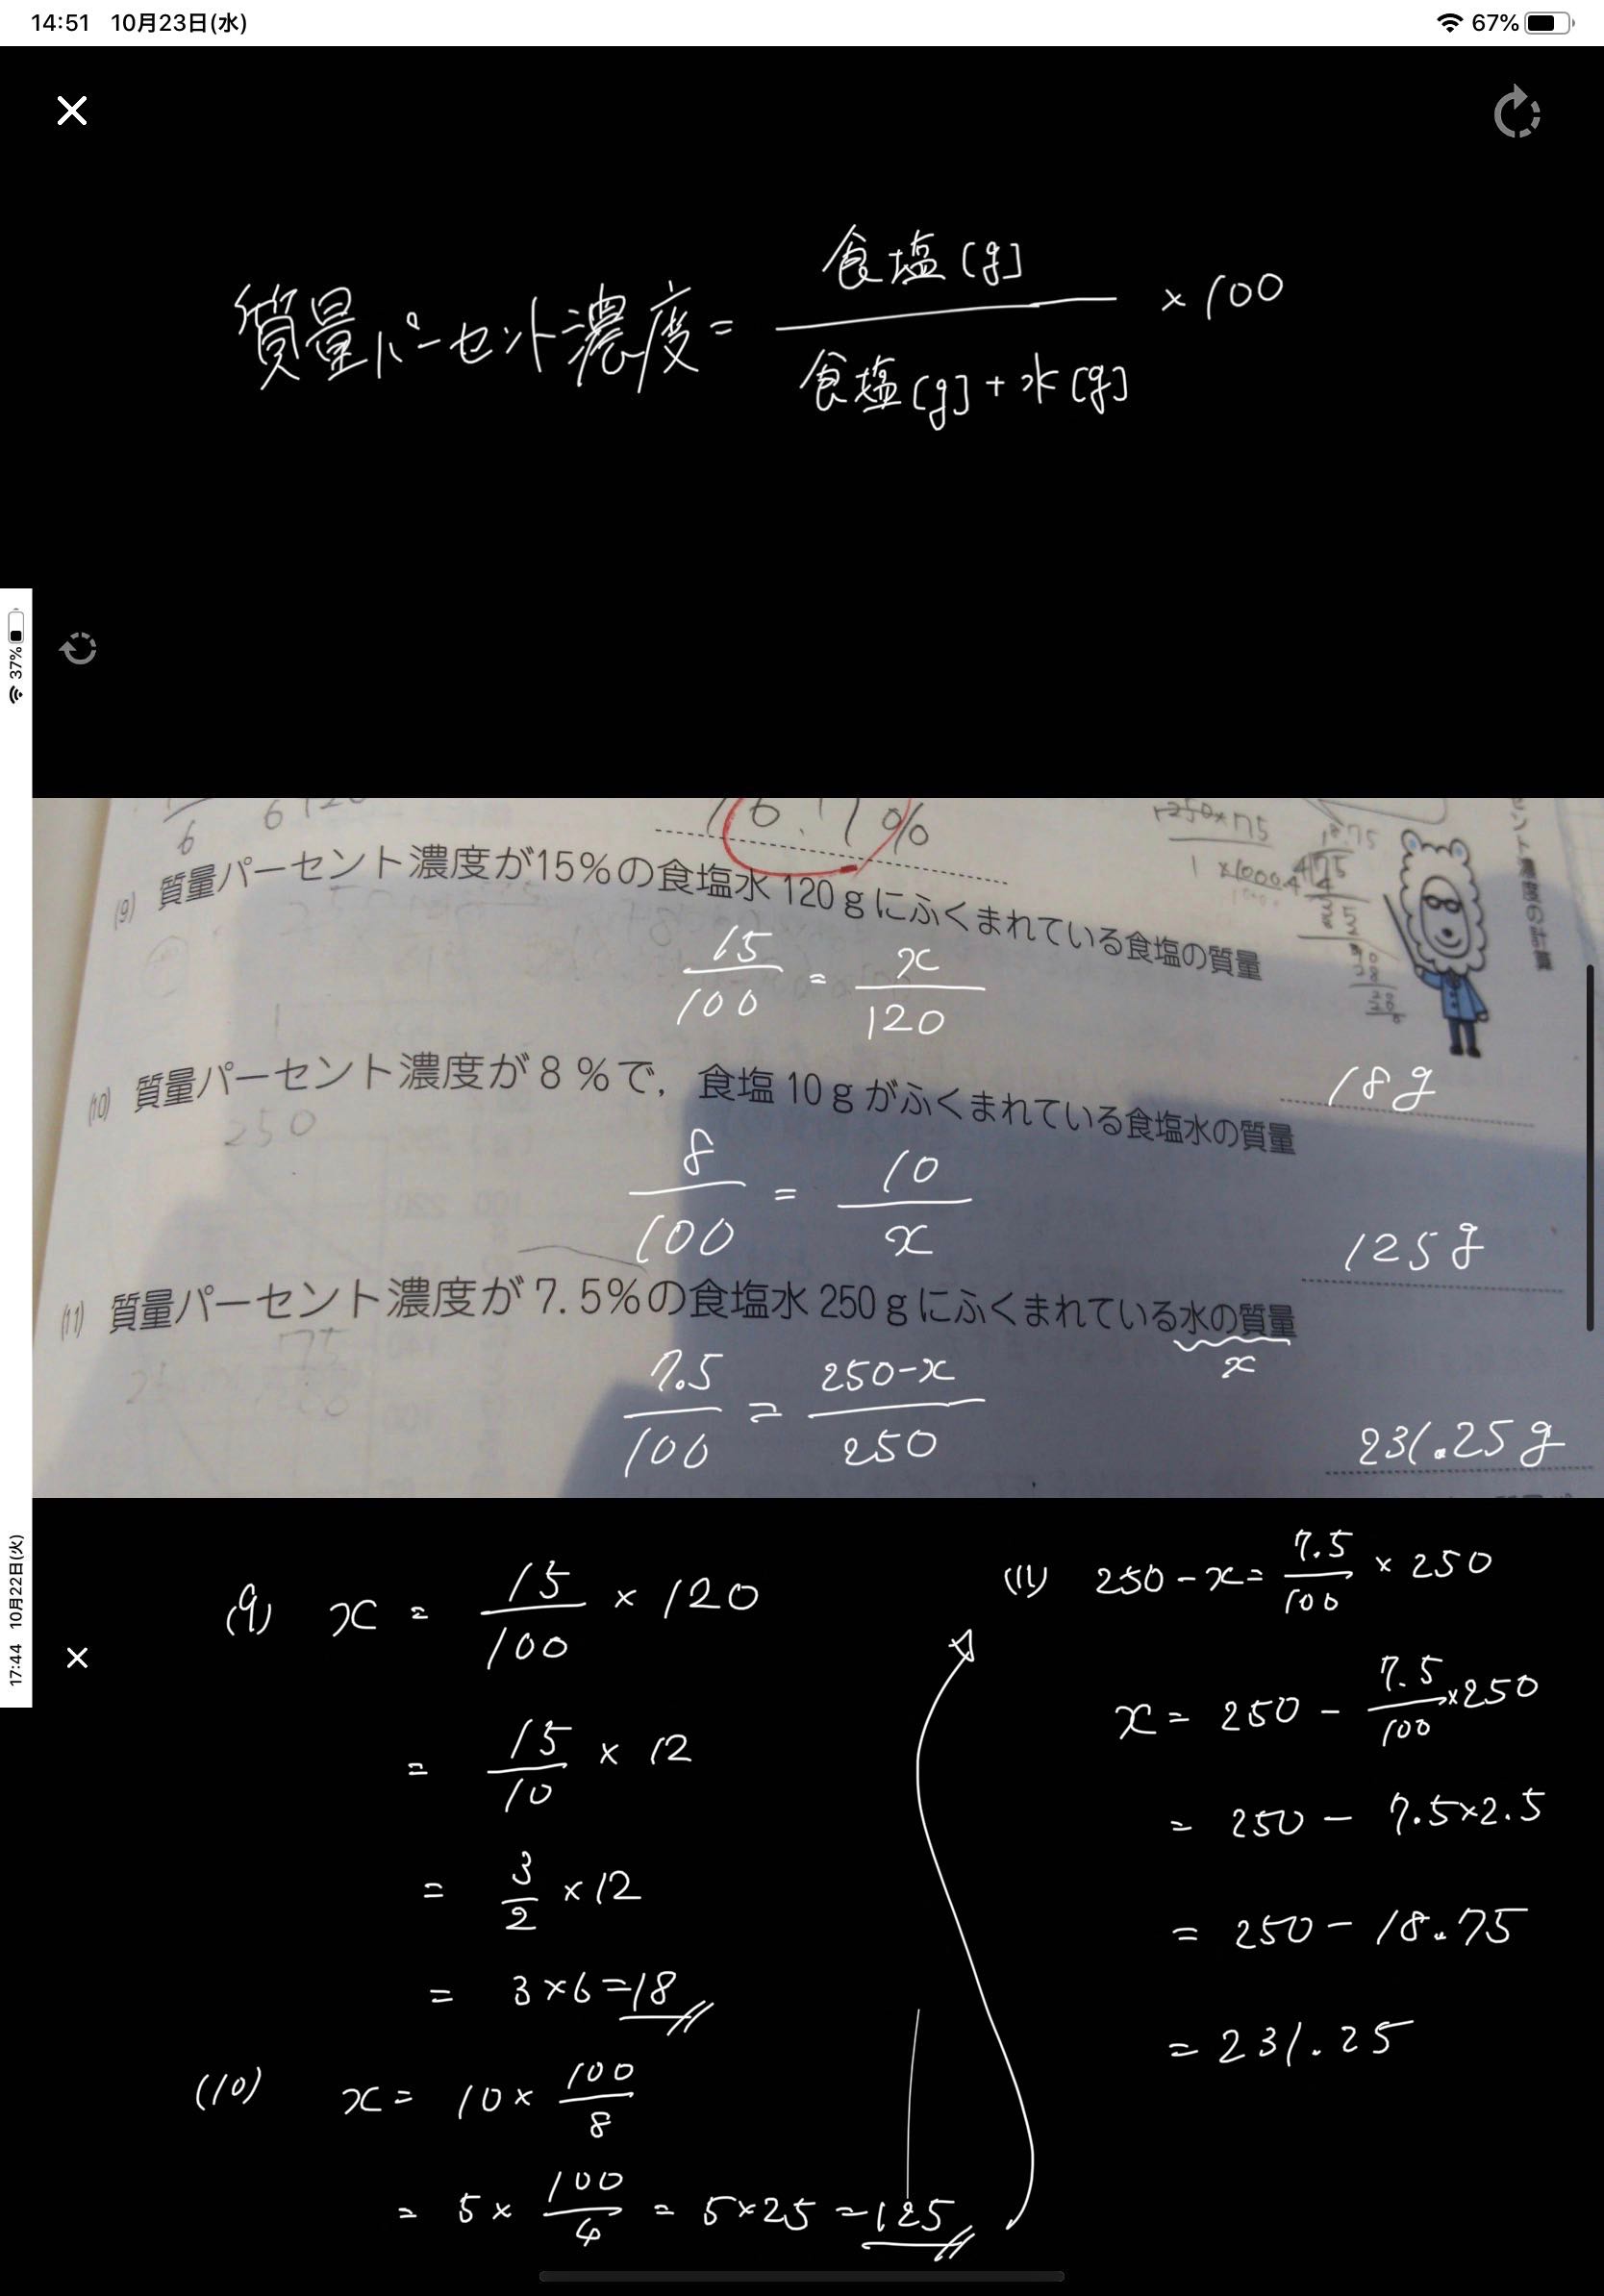 14:51 10月23日(水)
67%
質量パーセント濃度 = 食塩[g] / 食塩[g]+水[g] ×100
37%
16.7%
(9) 質量パーセント濃度が15%の食塩水120gにふくまれている食塩の質量
15/100 = x/120
18g
(10) 質量パーセント濃度が8%で,食塩10gがふくまれている食塩水の質量
250
8/100 = 10/x
125g
(11) 質量パーセント濃度が7.5%の食塩水250gにふくまれている水の質量
x
7.5/100 = 250-x/250
231.25g
17:44 10月22日(火)
(9) x = 15/100 × 120
= 15/10 × 12
= 3/2 ×12
= 3×6=18
(10) x = 10× 100/8
= 5× 100/4 = 5×25 =125
(11) 250-x= 7.5/100 ×250
x= 250- 7.5/100 ×250
= 250- 7.5×2.5
= 250-18.75
= 231.25